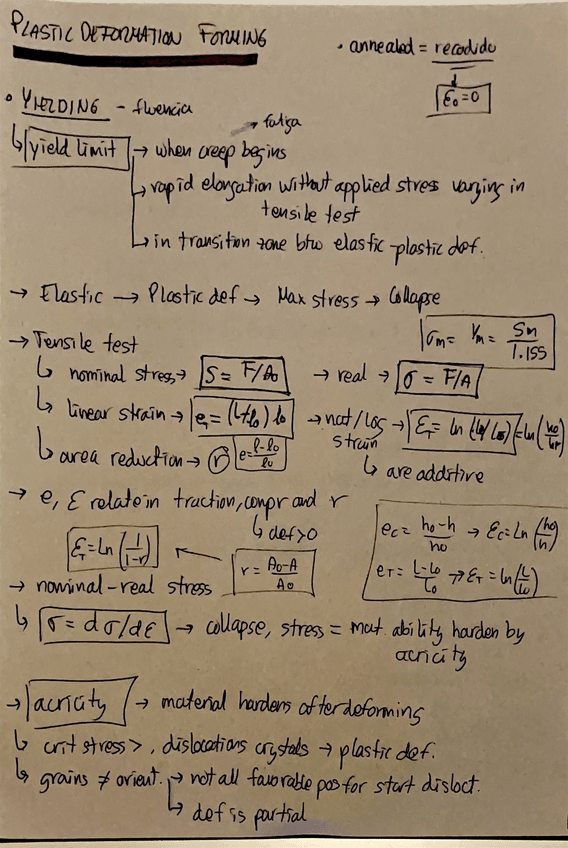 PLASTIC DEFORMATION FORMING
• annealed = recocido
ε₀=0
• YIELDING - fluencia
→ fatiga
↳ yield limit → when creep begins
↳ rapid elongation without applied stress varying in
tensile test
↳ in transition zone btw elastic-plastic def.
→ Elastic → Plastic def → Max stress → Collapse
→ Tensile test
σm = Ym = Sm/1.155
↳ nominal stress → S = F/A₀ → real → σ = F/A
↳ linear strain → e = (l+l₀) l₀ → nat/log strain → ε_T = ln (l₁/l₀) = ln(h₀/hf)
↳ area reduction → r e = l-l₀/l₀
↳ are additive
→ e, ε relate in traction, compr and r
↳ def>0
ε_T = ln (1/1-r) ← r = A₀-A/A₀
e_c = h₀-h/h₀ → ε_c = Ln (h₀/h)
e_T = L-L₀/L₀ → ε_T = ln(L/L₀)
→ nominal-real stress
↳ σ = dσ/dε → collapse, stress = mat. ability harden by
acricity
→ acricity → material hardens after deforming
↳ crit stress >, dislocations crystals → plastic def.
↳ grains ≠ orient. → not all favorable pos for start disloct.
↳ def is partial